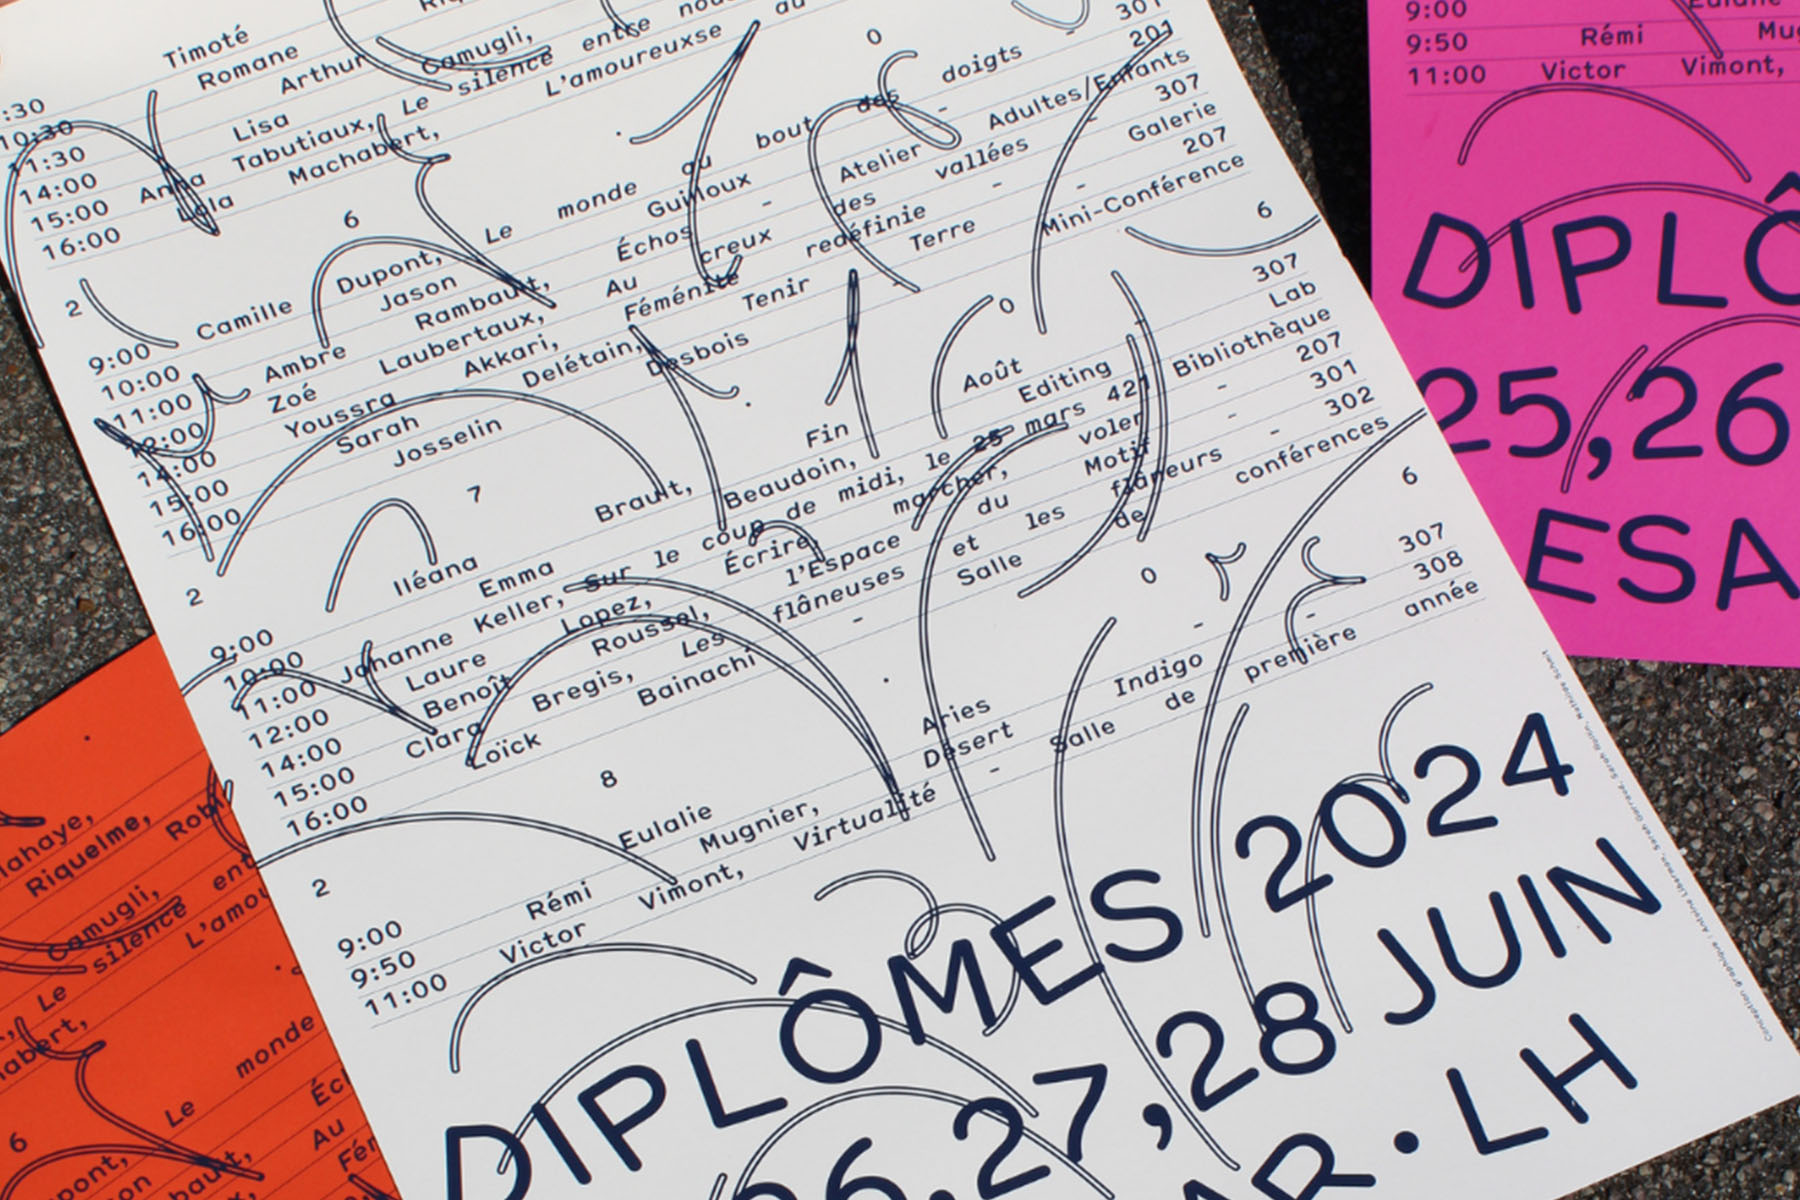 :30 Timoté
10:30 Romane
11:30 Arthur
14:00 Lisa Camugli,
15:00 Anna Tabutiaux, Le silence entre nous
16:00 Lola Machabert, L'amoureuxse au
2 6 0
9:00 Camille Dupont, Le monde au bout des doigts - 301
10:00 Jason Guilloux - 201
11:00 Ambre Rambault, Échos - Atelier Adultes/Enfants
12:00 Zoé Laubertaux, Au creux des vallées - 307
14:00 Youssra Akkari, Féménité redéfinie - Galerie
15:00 Sarah Delétain, Tenir Terre - 207
16:00 Josselin Desbois - Mini-Conférence
2 7 0 6
9:00 Iléana Brault, Fin Août - 307
10:00 Emma Beaudoin, Editing Lab
11:00 Johanne Keller, Sur le coup de midi, le 25 mars 421 Bibliothèque
12:00 Laure Lopez, Écrire, marcher, voler - 207
14:00 Benoît Roussel, l'Espace du Motif - 301
15:00 Clara Bregis, Les flâneuses et les flâneurs - 302
16:00 Loïck Bainachi - Salle de conférences
2 8 0 6
9:00 Eulalie Aries - 307
9:50 Rémi Mugnier, Désert Indigo - 308
11:00 Victor Vimont, Virtualité - Salle de première année
DIPLÔMES 2024
26,27,28 JUIN
AR • LH
9:00 Eulalie
9:50 Rémi Mug
11:00 Victor Vimont,
DIPLÔ
25,26
ESA
lahaye,
Riquelme, Robi
Camugli,
silence ent
Le L'amou
habert,
6 Le monde
pont, Éc
Au
bault, Fém